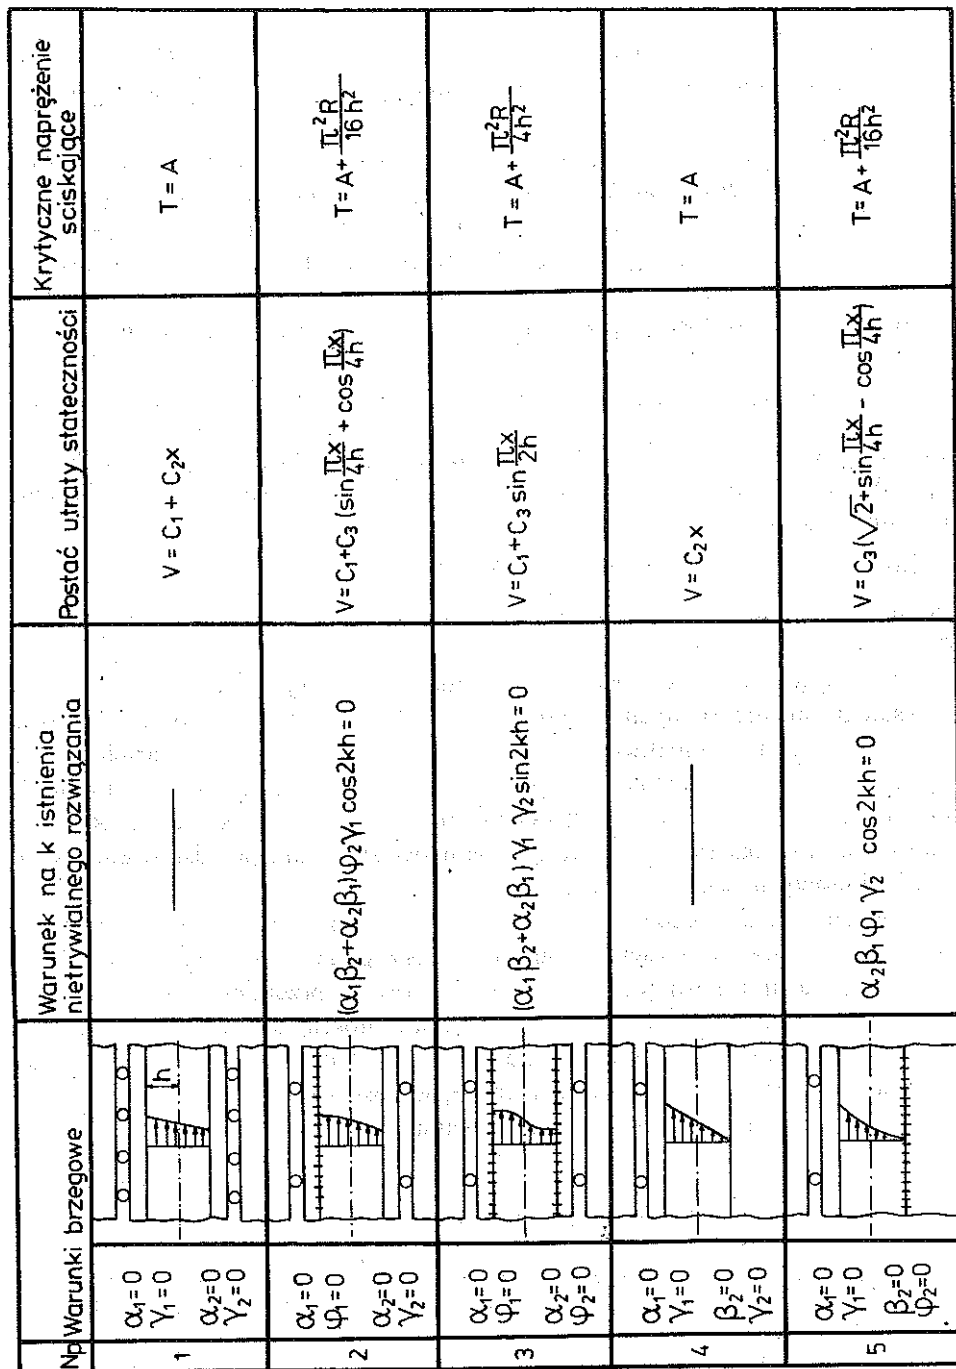 Np
Warunki brzegowe
Warunek na k istnienia
nietrywialnego rozwiązania
Postać utraty stateczności
Krytyczne naprężenie
sciskające
1
α₁=0
γ₁=0
α₂=0
γ₂=0
h
V = C₁ + C₂x
T = A
2
α₁=0
φ₁=0
α₂=0
γ₂=0
(α₁β₂+α₂β₁)φ₂γ₁ cos2kh = 0
V = C₁+C₃ (sin πx/4h + cos πx/4h)
T = A + π²R/16h²
3
α₁=0
φ₁=0
α₂=0
φ₂=0
(α₁β₂+α₂β₁)γ₁ γ₂ sin2kh = 0
V = C₁+C₃ sin πx/2h
T = A + π²R/4h²
4
α₁=0
γ₁=0
β₂=0
γ₂=0
V = C₂x
T = A
5
α₁=0
γ₁=0
β₂=0
φ₂=0
α₂β₁φ₁γ₂ cos2kh = 0
V = C₃(√2+sin πx/4h - cos πx/4h)
T = A + π²R/16h²